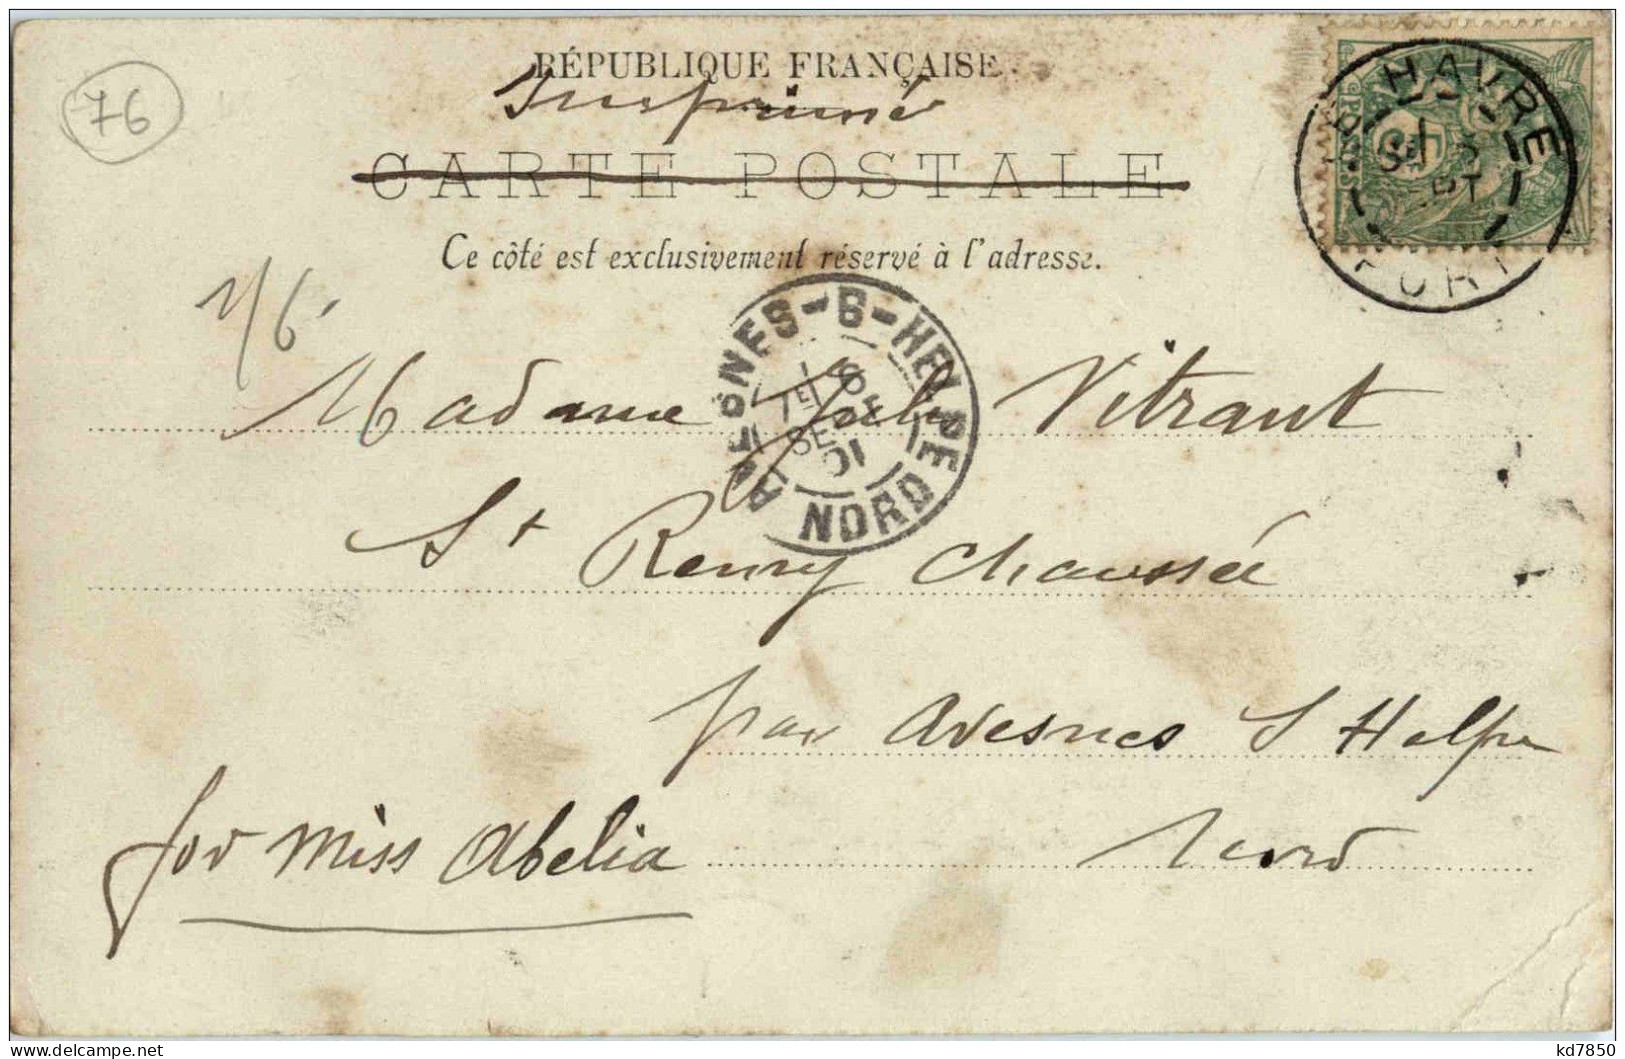 76
RÉPUBLIQUE FRANÇAISE
Imprimé
CARTE POSTALE
Ce côté est exclusivement réservé à l'adresse.
HAVRE
SEPT
PORT
1/6
AVESNES-S-HELPE
7E
SEPT
01
NORD
Madame Jules Vitrant
St Remy Chaussée
par Avesnes S Helpe
Nord
for Miss Abelia
kd7850